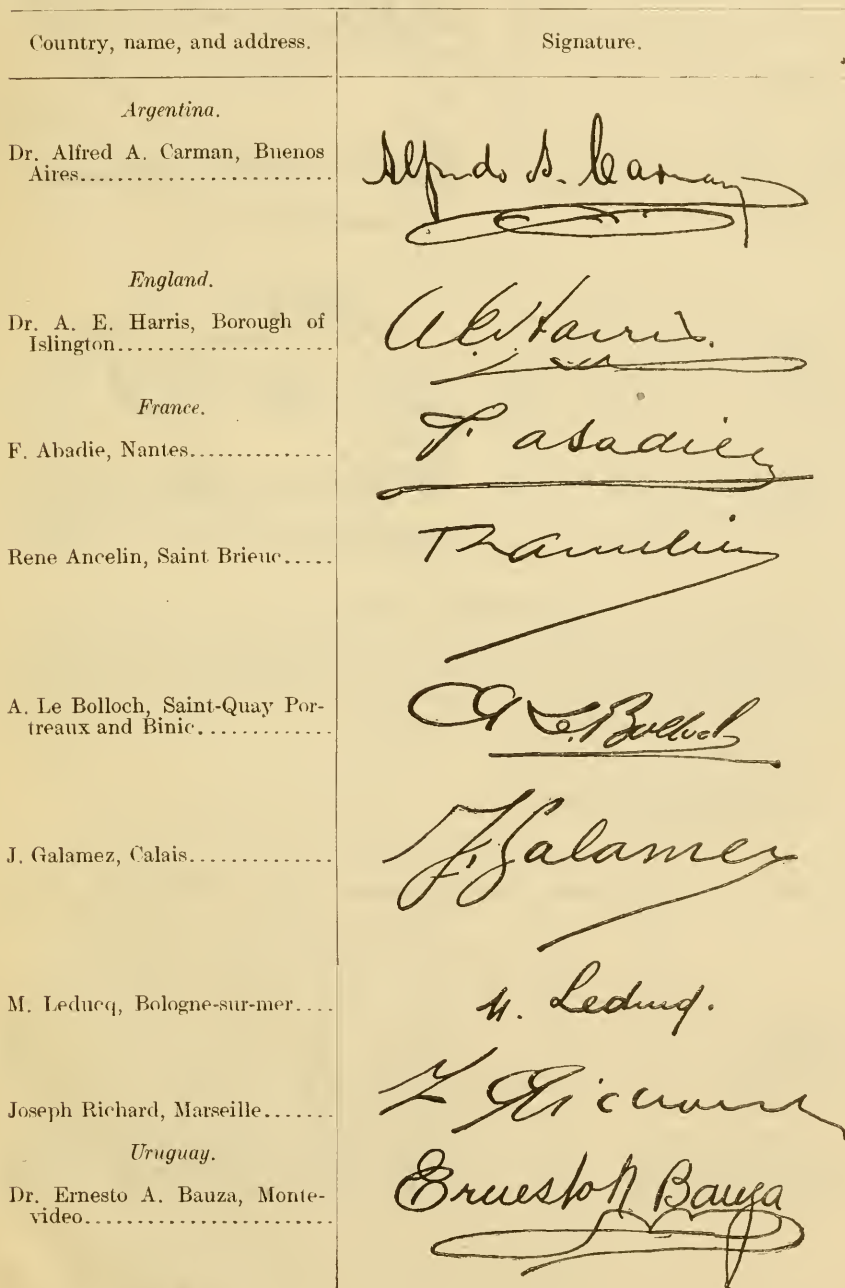 Country, name, and address.
Signature.
Argentina.
Dr. Alfred A. Carman, Buenos
Aires........................
Alfredo A. Carman
England.
Dr. A. E. Harris, Borough of
Islington....................
A E Harris.
France.
F. Abadie, Nantes..............
F. abadie
Rene Ancelin, Saint Brieuc.....
A. Le Bolloch, Saint-Quay Por-
treaux and Binic............
A Le Bolloch
J. Galamez, Calais.............
J. Galamez
M. Leducq, Bologne-sur-mer....
M. Leducq.
Joseph Richard, Marseille.......
Uruguay.
Dr. Ernesto A. Bauza, Monte-
video.......................
Ernesto A Bauza